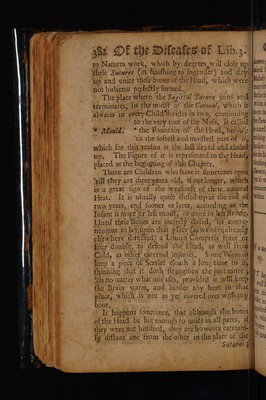 382 Of the Diseases of Lib.3.
to Natures work, which by degrees, will close up
these Sutures (in hardning to ingender) and dry
up and unite these bones of the Head, which were
not hitherto perfectly formed.
The place where the Sagittal Suture joins and
terminates, is the midst of the Coronal, which is
always in every Child divides in two, continuing
to the very root of the Nose, is called
" Mould. " the Fountain of the Head, because
'tis the softest and moistest part of it,
which for this reason is the last dryed and closed
up. The Figure of it is represented in the Head,
placed at the beginning of this Chapter.
There are Children who have it sometimes open
'till they are three years old, if not longer, which
is a great sign of the weakness of their natural
Heat. It is usually quite closed up at the end of
two years, and sooner or later, according as the
Infant is more or less moist, or more or less strong.
Until these bones are entirely closed,
nient to lay upon that place (as we have already
elsewhere directed) a Linnen Compress three or
four double, to defend the Head, as well from
Cold, as other external injuries. Some Women
keep a piece of Scarlet Cloath a long time to it,
thinking that it doth strengthen the part more;
'tis no matter what one uses, provided it will keep
the Brain warm, and hinder any hurt in that
place, which is not as yet covered over with any
bone.
It happens sometimes, that although the bones
of the Head be big enough to unite in all parts, if
they were not hindred, they are however extream-
ly distant one from the other in the place of the
Sutures